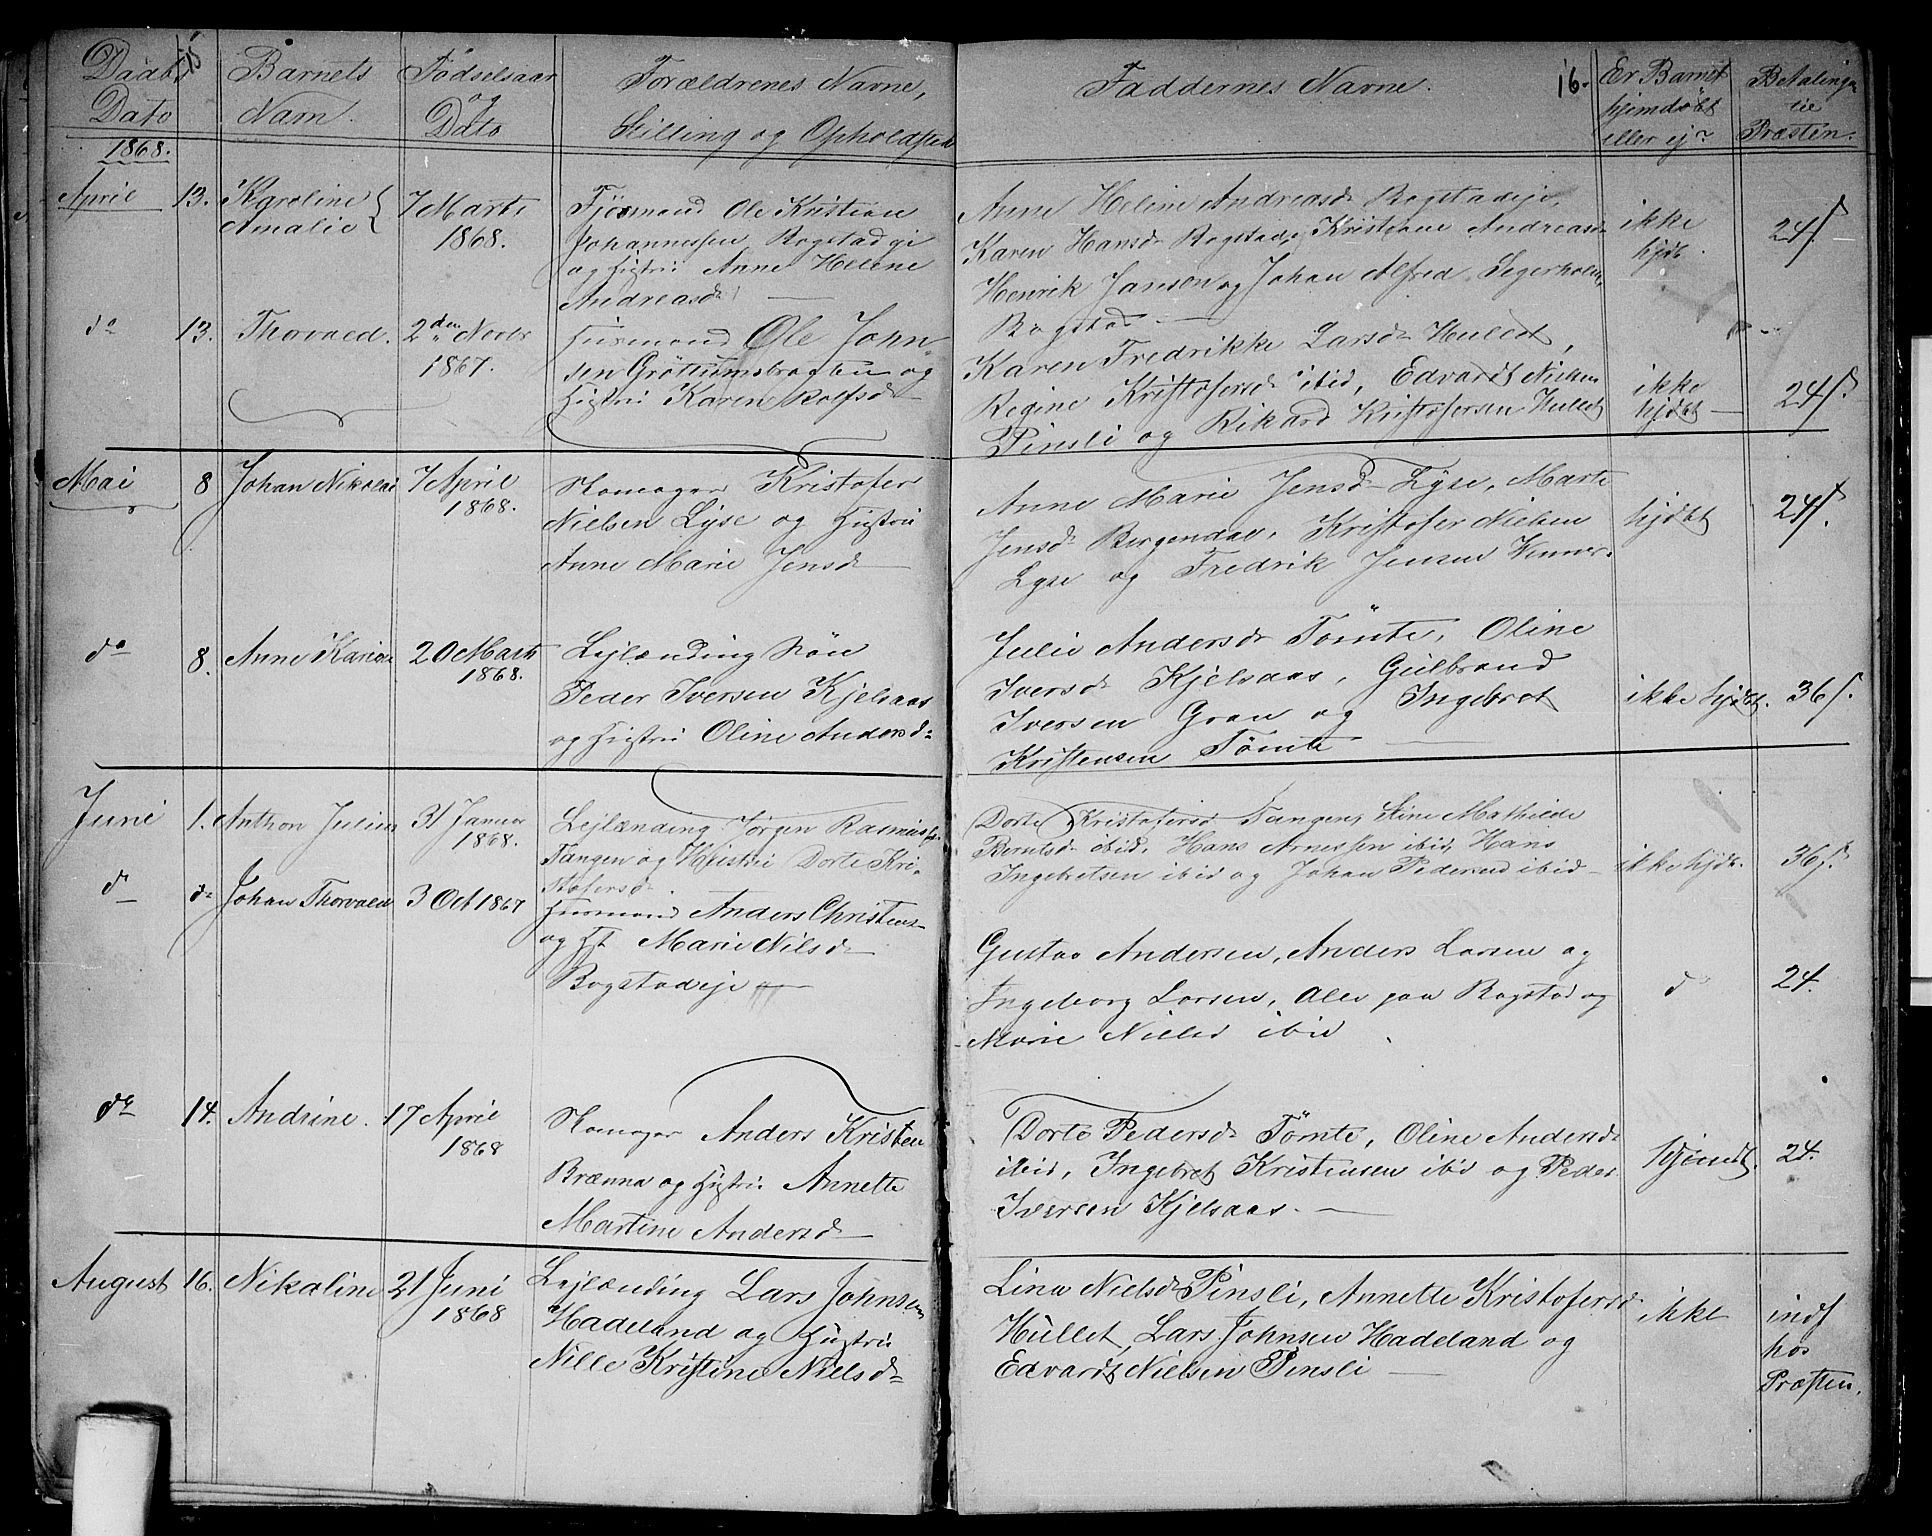 15
Daabs Dato
Barnets Navn.
Födselsaar og Dato
Forældrenes Navne, Stilling og Opholdsted
Faddernes Navne.
16.
Er Barnet hjemdöbt eller ej?
Betalingen til Præsten.
1868.
April 13. Karoline Amalie
7 Marts 1868.
Fjösmand Ole Kristian
Johannessen Bogstadeje
og Hustru Anne Helene
Andreasd.
Anne Helene Andreasd. Bogstadeje,
Karen Hansd. Bogstad, Kristiane Andreasd.
Henrik Jansen og Johan Alfred Segerholm,
Bogstad
ikke hjdt.
24 s.
do 13. Thorvald.
2den Novbr 1867.
Husmand Ole John-
sen Gröttumsbraaten og
Hustru Karen Rolfsd.
Karen Fredrikke Larsd. Hullet,
Regine Kristofersd. ibid, Edvardt Nielsen
Pinsli og Rikard Kristofersen Hullet
ikke hjdbt
24 s.
Mai 8 Johan Nikolai
7 April 1868.
Kristofer
Nielsen Lyse og Hustru
Anne Marie Jensd.
Anne Marie Jensd. Lyse, Marte
Jensd. Bergendal, Kristofer Nielsen
Lyse og Fredrik Jensen
hjdbt
24 s.
do 8. Anne Karine
20 Marts 1868.
Lejlænding Sön
Peder Iversen Kjelsaas
og Hustru Oline Andersd.
Julie Andersd. Tömte, Oline
Iversd. Kjelsaas, Gulbrand
Iversen Gran og Ingebret
Kristensen Tömte
ikke hjdbt. 36 s.
Juni 1. Anthon Julius
31 Januar 1868.
Lejlænding Jörgen Rasmuss.
Tangen og Hustru Dorte Kri-
stofersd.
Dorte Kristofersd. Tangen, Stine Mathilde
Berntsd. ibid, Hans Arnessen ibid, Hans
Ingebretsen ibid og Johan Pedersen ibid
ikke hjdt.
36 s.
do do Johan Thorvald
3 Oct 1867
Husmand Anders Christens.
og H. Marie Nilsd.
Bogstadeje
Gustav Andersen, Anders Larsen og
Ingeborg Larsen, Alle paa Bogstad og
Marie Nielsd ibid
do
24.
do 14. Andrine.
17 April 1868
Anders Kristens.
Brænna og Hustru Annette
Martine Andersd.
Dorte Pedersd. Tömte, Oline Andersd.
ibid, Ingebret Kristensen ibid og Peder
Iversen Kjelsaas.
hjemdt. 24.
August 16. Nikaline
21 Juni 1868
Lejlænding Lars Johnsen
Hadeland og Hustru
Nille Kristine Nielsd.
Lina Nielsd. Pinsli, Annette Kristofersd.
Hullet, Lars Johnsen Hadeland og
Edvardt Nielsen Pinsli
ikke
indf hos Præsten.